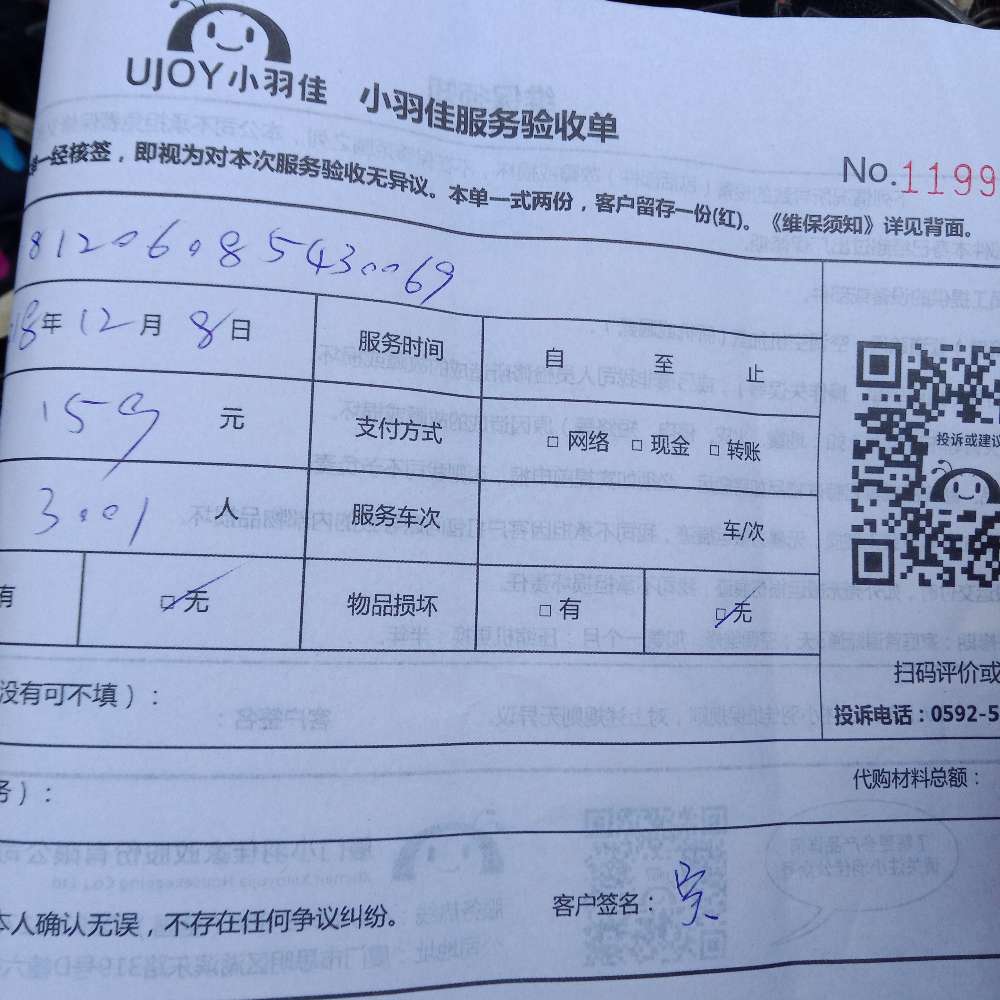 UJOY小羽佳 小羽佳服务验收单
一经核签，即视为对本次服务验收无异议。本单一式两份，客户留存一份(红)。《维保须知》详见背面。
No.1199
81206085430069
18年 12月 8日 服务时间 自 至 止
元 支付方式 □ 网络 □ 现金 □ 转账
投诉或建议
3001 人 服务车次 车/次
有 □ 无 物品损坏 □ 有 □ 无
扫码评价或
没有可不填）：
投诉电话：0592-5
代购材料总额：
务）：
本人确认无误，不存在任何争议纠纷。 客户签名：